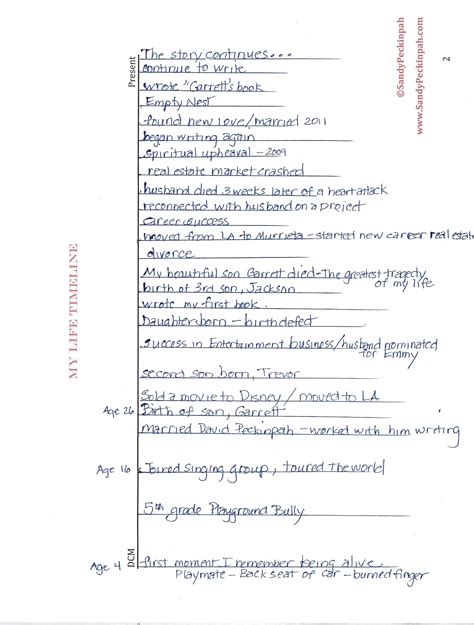 ©SandyPeckinpah
www.SandyPeckinpah.com
2
MY LIFE TIMELINE
Present
The story continues...
continue to write
wrote "Garrett's book
Empty Nest
found new love/married 2011
began writing again
spiritual upheaval - 2009
real estate market crashed
husband died 3 weeks later of a heart attack
reconnected with husband on a project
Career success
moved from LA to Murrieta - started new career real estate
divorce
My beautiful son Garrett died - The greatest tragedy
of my life
birth of 3rd son, Jackson
wrote my first book.
Daughter born - birth defect
Success in Entertainment business/husband nominated
for Emmy
second son born, Trevor
Sold a movie to Disney / moved to LA
Age 26 Birth of son, Garrett
married David Peckinpah - worked with him writing
Age 16 Joined Singing group, toured the world
5th grade Playground Bully
Age 4 DCM first moment I remember being alive.
Playmate - Back seat of car - burned finger